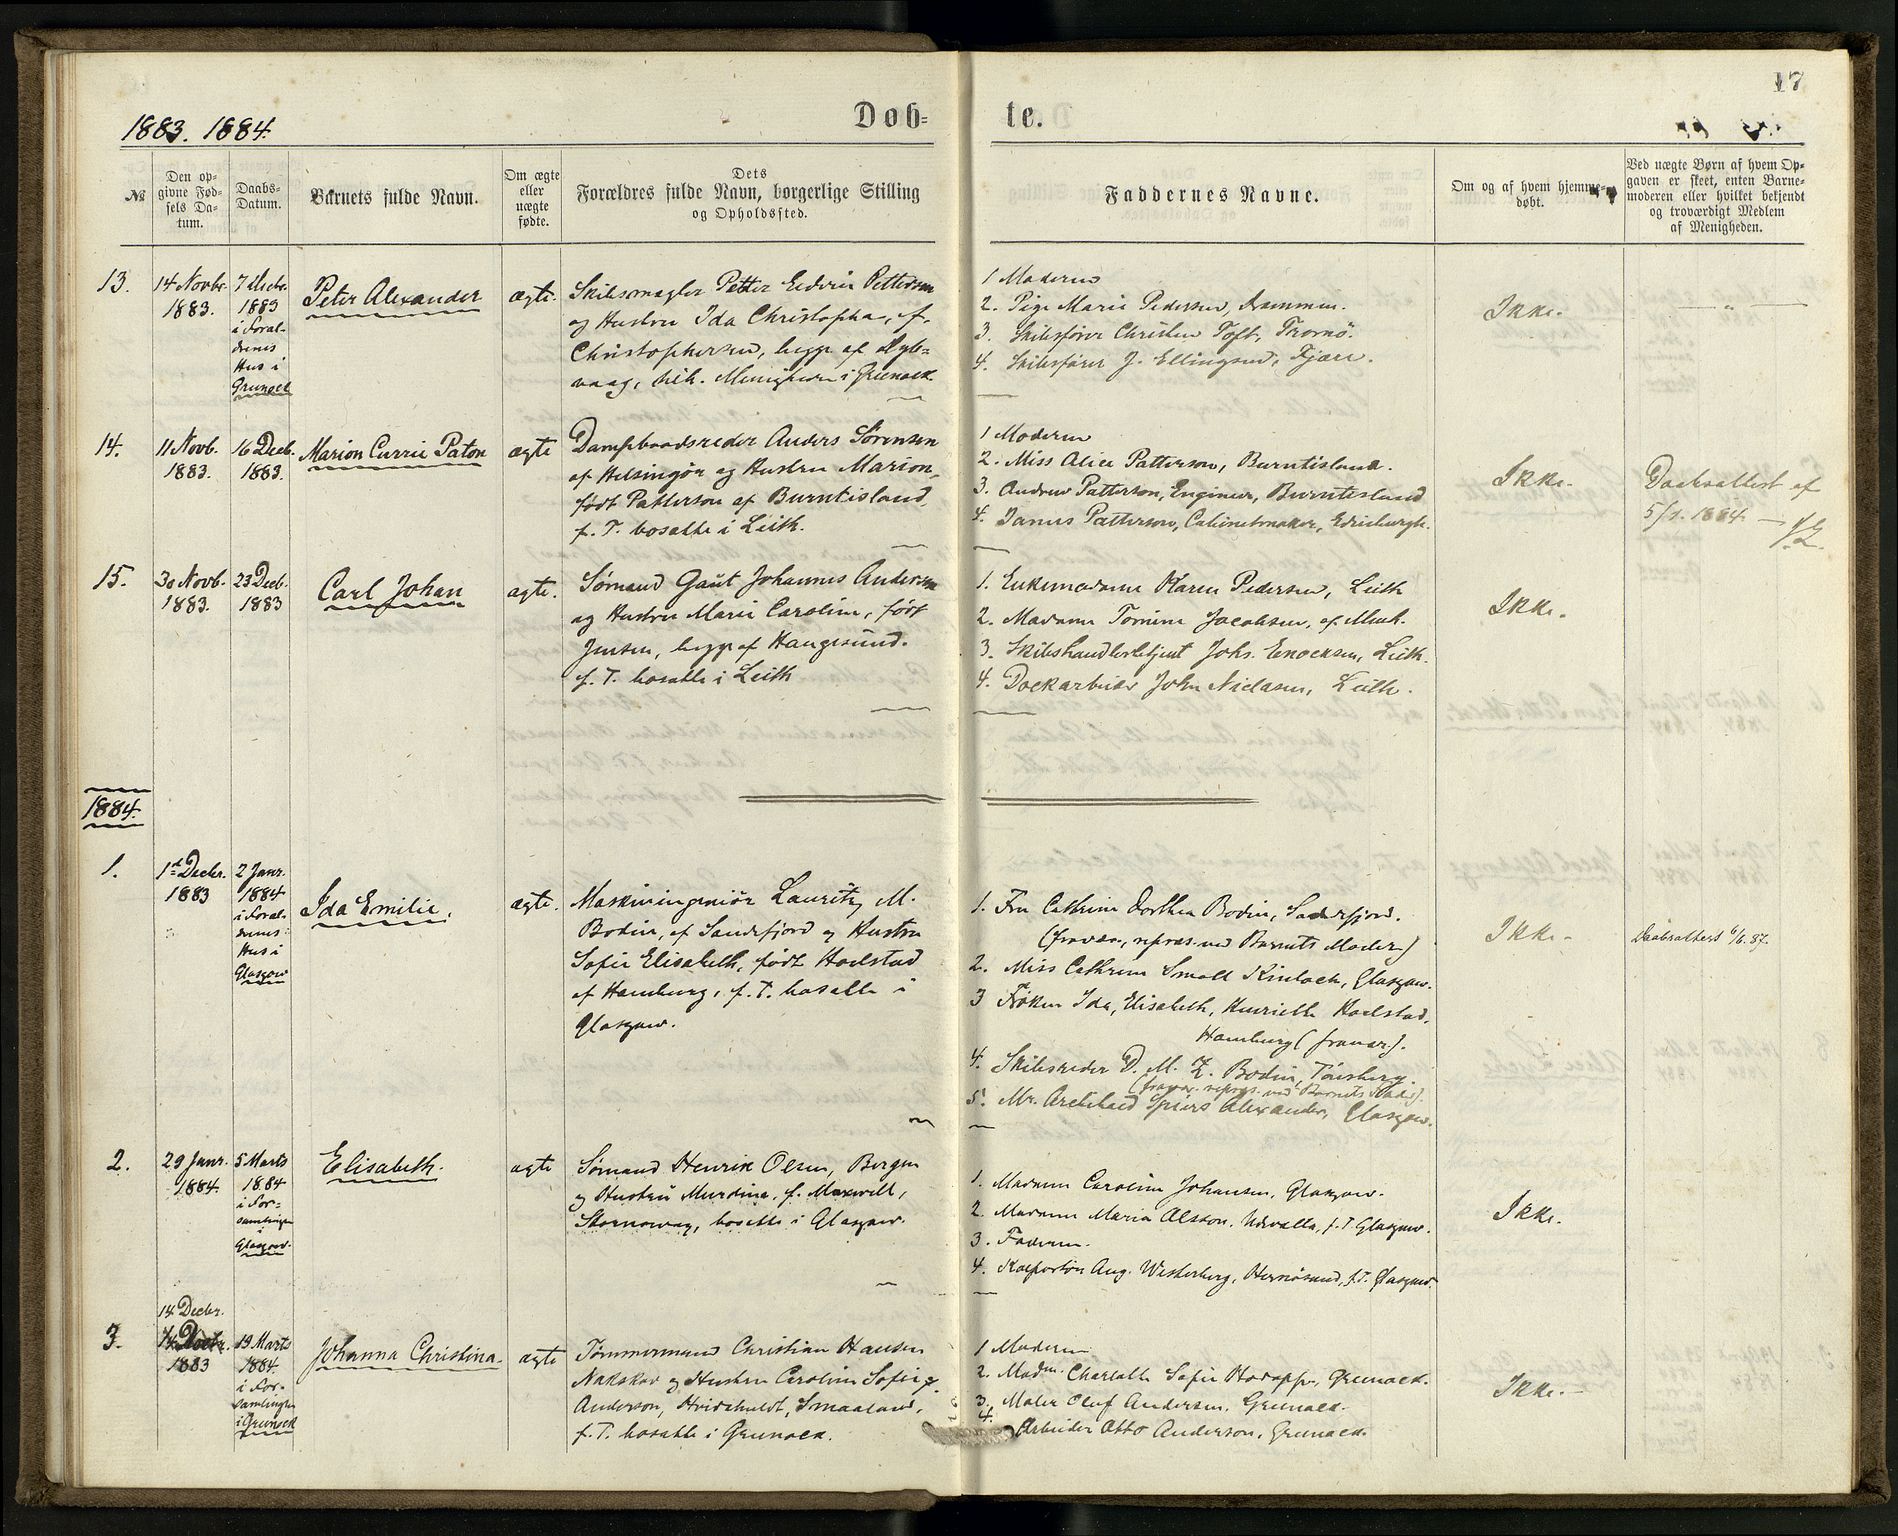 17
1883. 1884.
Døb-
te.
№
Den op-
givne Fød-
sels Da-
tum.
Daabs-
Datum.
Barnets fulde Navn.
Om ægte
eller
uægte
fødte.
Dets
Forældres fulde Navn, borgerlige Stilling
og Opholdssted.
Faddernes Navne.
Om og af hvem hjemme-
døbt.
Ved uægte Børn af hvem Op-
gaven er skeet, enten Barne-
moderen eller hvilket bekjendt
og troværdigt Medlem
af Menigheden.
13.
14 Novbr.
1883.
7 Decbr.
1883
i Foræl-
drenes
Hus i
Grenock
Peter Alexander
ægte.
Skibsmægler Petter Edvin Pettersen
og Hustru Ida Christopha, f.
Christophersen, begge af
Menigheden i Grenock.
1 Moderen
2. Pige Marie Pedersen, Drammen.
3. Skibsfører Christen Toft, Tromø.
4. Skibsfører J. Ellingsen, Fjære.
Ikke.
"
14.
11 Novb.
1883.
16 Decb.
1883.
Marion Currie Paton
ægte
Dampbaadsreder Anders Sørensen
af Helsingør og Hustru Marion,
født Patterson af Burntisland,
f. T. bosatte i Leith.
1 Moderen
2. Miss Alice Patterson, Burntisland.
3. Andrew Patterson, Engineer, Burntisland
4. James Patterson, Cabinetmaker, Edinburgh.
Ikke.
Daabsattest af
5/1. 1884 —
15.
30 Novb.
1883.
23 Decb.
1883
Carl Johan
ægte.
Sømand Gaut Johannes Andersen
og Hustru Marie Caroline, født
Jensen, begge af Haugesund.
f. T. bosatte i Leith
1. Enkemadame Maren Pedersen, Leith
2. Madame Tomine Jacobsen, af
3. Skibshandlerbetjent Johs. Enocksen, Leith.
4. Dockarbeider John Niclasen, Leith.
Ikke.
1884.
1.
1st Decbr.
1883
2 Janr.
1884
i Foræl-
drenes
Hus i
Glasgow
Ida Emilie.
ægte.
Maskiningeniør Lauritz M.
Bodin, af Sandefjord og Hustru
Sofie Elisabeth, født Hoelstad
af Hamburg, f. T. bosatte i
Glasgow.
1. Fru Cathrine Dorthea Bodin, Sandefjord.
(fravær., repræs. ved Barnets Moder)
2. Miss Cathrine Small Kinloch, Glasgow.
3 Frøken Ida, Elisabeth, Henriette Hoelstad,
Hamburg (fravær.).
4. Skibsreder D. M. Z. Bodin, Tønsberg.
(fravær. repræs. ved Barnets Fader).
5. Mr. Archibald Spiers Alexander, Glasgow.
Ikke.
Daabsattest 6/6. 87.
2.
29 Janr.
1884.
5 Marts
1884
i For-
samlingen
i
Glasgow.
Elisabeth.
ægte
Sømand Henrik Olsen, Bergen
og Hustru Murdina, f. Maxwell,
Stornoway, bosatte i Glasgow.
1. Madame Caroline Johansen, Glasgow.
2. Madame Maria Olsson, Udevalla, f. T Glasgow.
3. Faderen.
4. Kolportør Aug. Westerberg, Hernösand, f. T. Glasgow.
Ikke.
3.
14 Decbr.
1883
19 Marts
1884.
i For-
samlingen
i Grenock
Johanna Christina.
ægte
Tømmermand Christian Hansen
Nakskov og Hustru Caroline Sofie f.
Anderson, Hvidehuldt, Smaaland,
f. T. bosatte i Grenock.
1 Moderen
2. Madm. Charlotte Sofie Grenock.
3. Maler Olof Anderson, Grenock.
4. Arbeider Otto Anderson, Grenock.
Ikke.